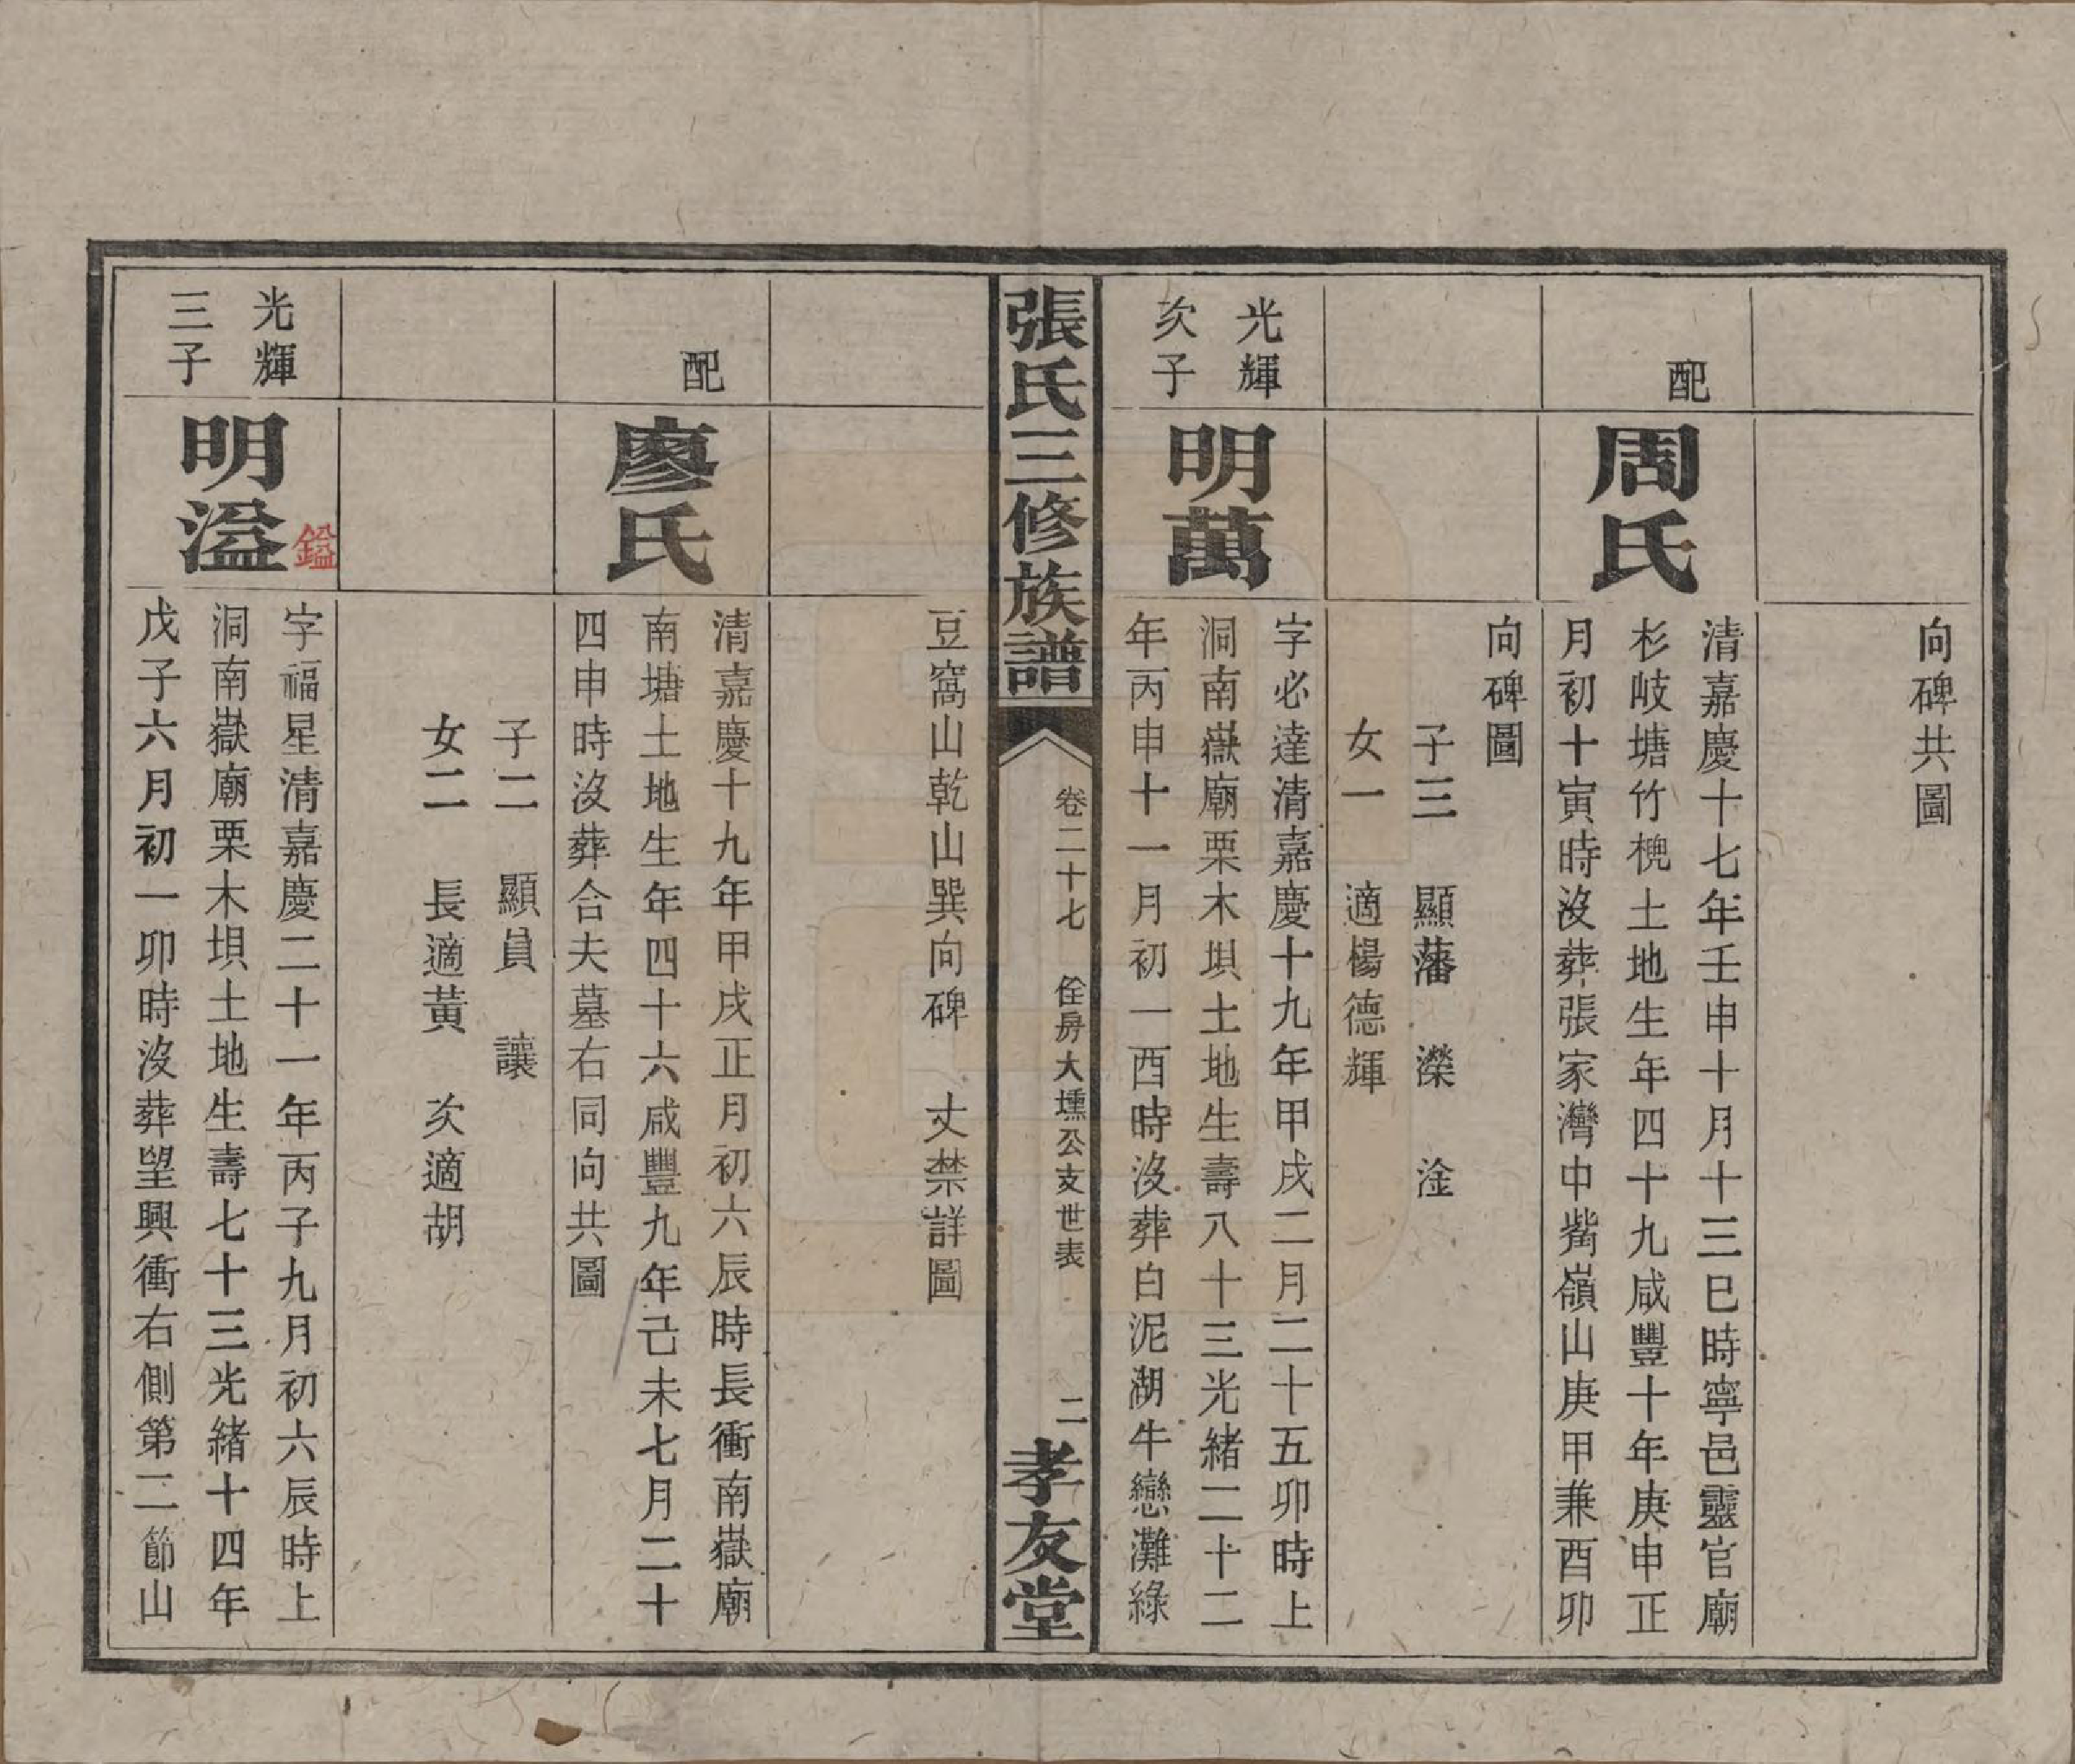 向碑共圖
配
周氏
清嘉慶十七年壬申十月十三巳時寧邑靈官廟
杉岐塘竹㮝土地生年四十九咸豐十年庚申正
月初十寅時沒葬張家灣中嘴嶺山庚甲兼酉卯
向碑圖
子三　顯藩　濚　淦
女一　適楊德輝
光輝
次子
明萬
字必達清嘉慶十九年甲戌二月二十五卯時上
洞南嶽廟栗木垻土地生壽八十三光緒二十二
年丙申十一月初一酉時沒葬白泥湖牛戀灘綠
張氏三修族譜
卷二十七　佺房大壎公支世表　二
孝友堂
豆窩山乾山巽向碑　丈禁詳圖
配
廖氏
清嘉慶十九年甲戌正月初六辰時長衝南嶽廟
南塘土地生年四十六咸豐九年己未七月二十
四申時沒葬合夫墓右同向共圖
子二　顯員　讓
女二　長適黃　次適胡
光輝
三子
明溢
鎰
字福星清嘉慶二十一年丙子九月初六辰時上
洞南嶽廟栗木垻土地生壽七十三光緒十四年
戊子六月初一卯時沒葬望興衝右側第二節山